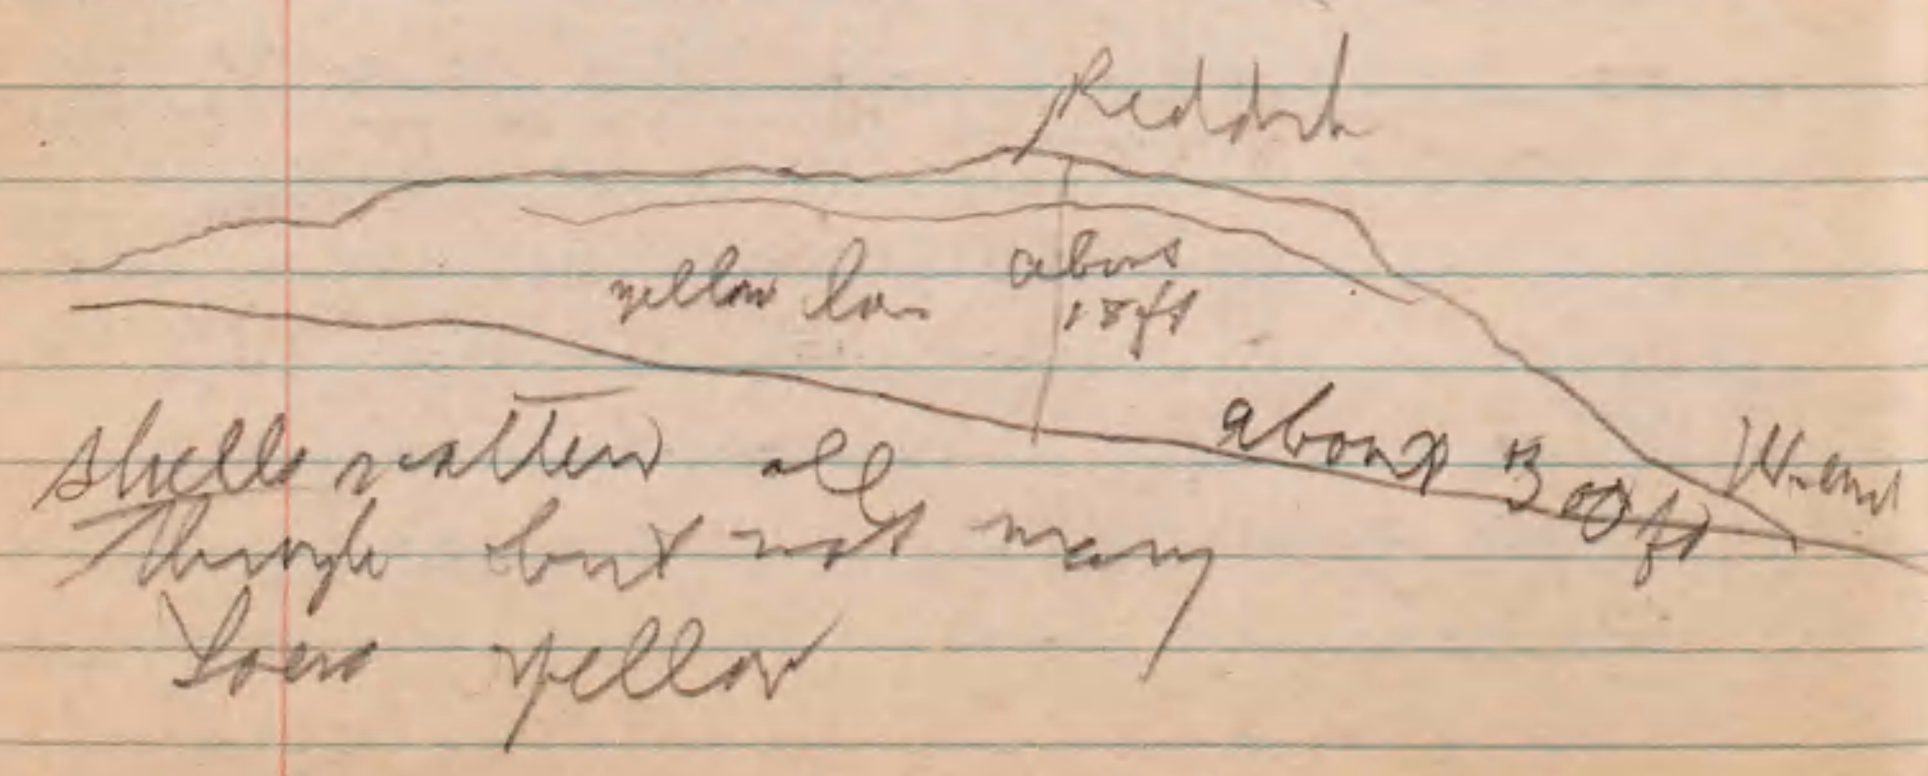 Reddish
yellow loess about
18 ft
about 300 ft
W. end
shells scattered all
through but not many
Loess yellow